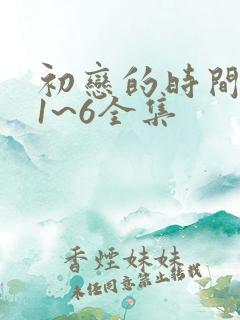 初戀的時間
1~6全集
香煙妹妹
未经同意禁止转载